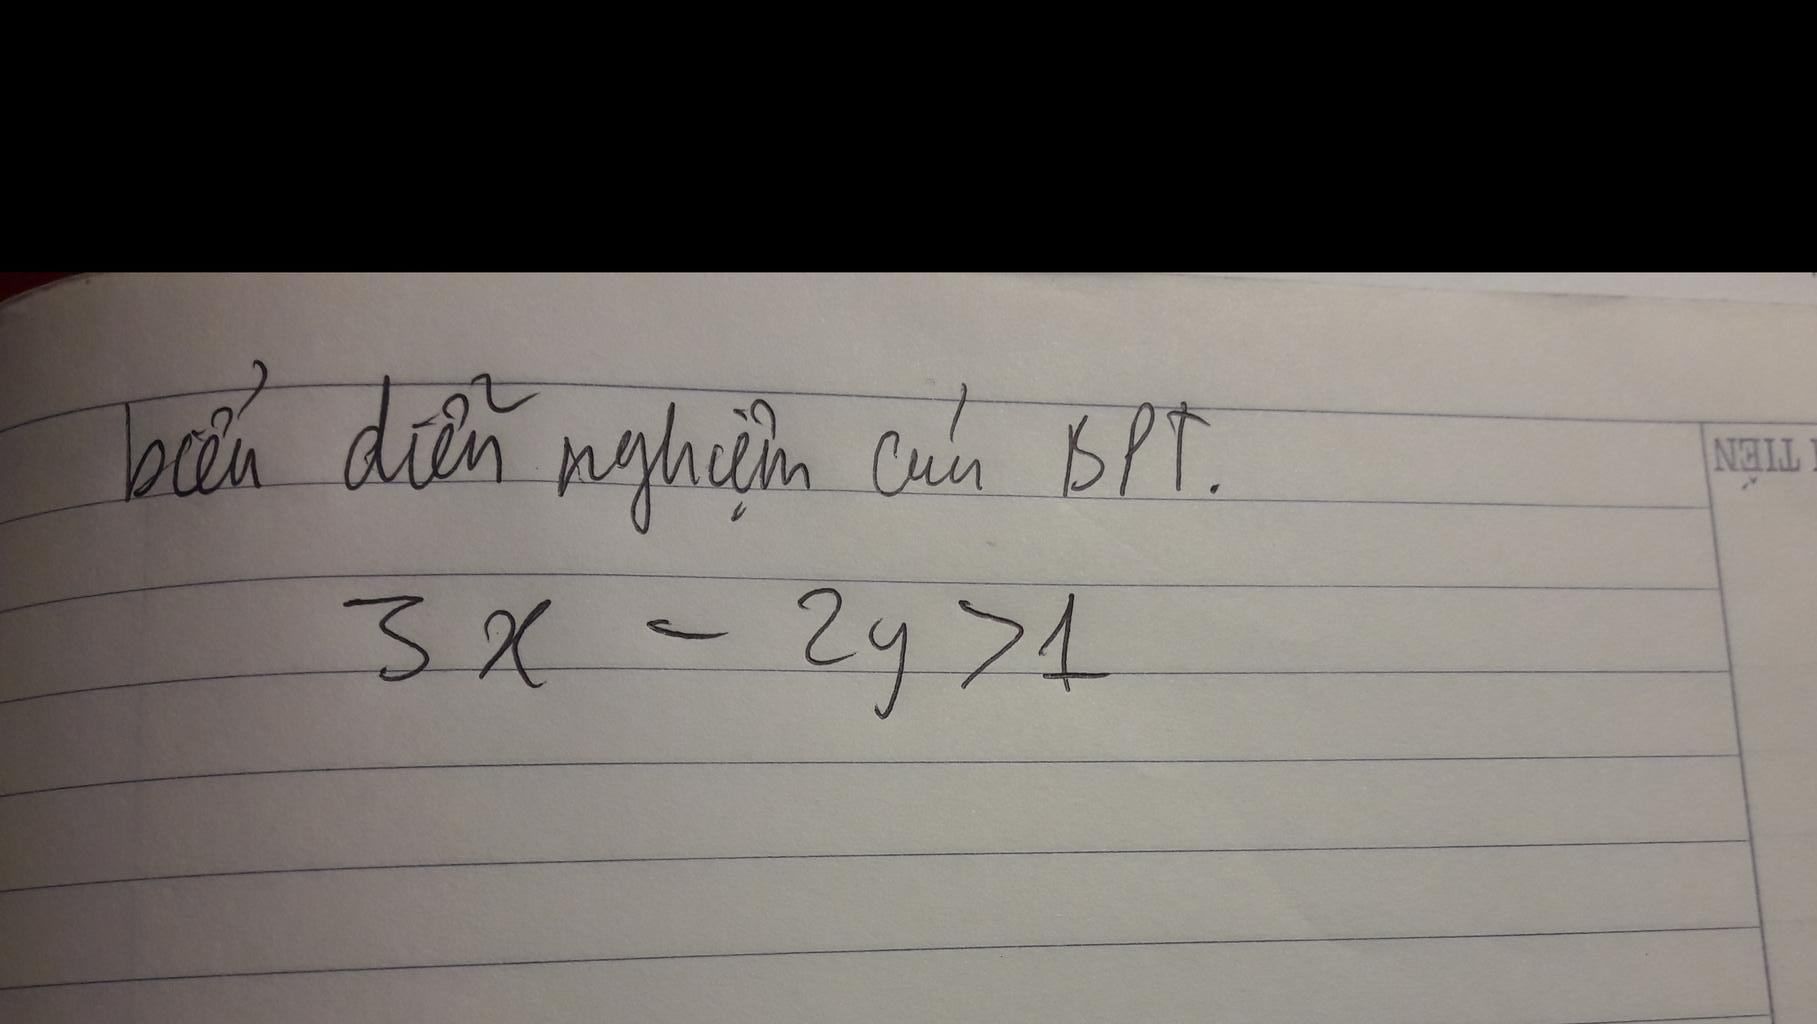 biểu diễn nghiệm của BPT.
3x - 2y > 1
TIỀN